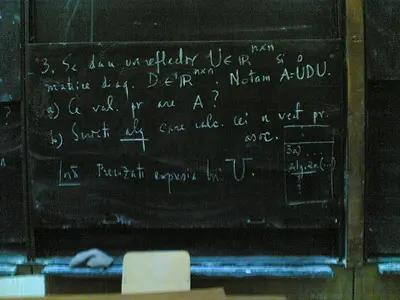 3. Se dau un reflector U ∈ ℝⁿˣⁿ si o
matrice diag. D ∈ ℝⁿˣⁿ. Notam A = UDU.
a) Ce val. pr are A ?
b) Scrieti alg care calc. cei n vect pr.
asoc.
Precizati expresia lui U.
3a) ...
alg. 2n(...)